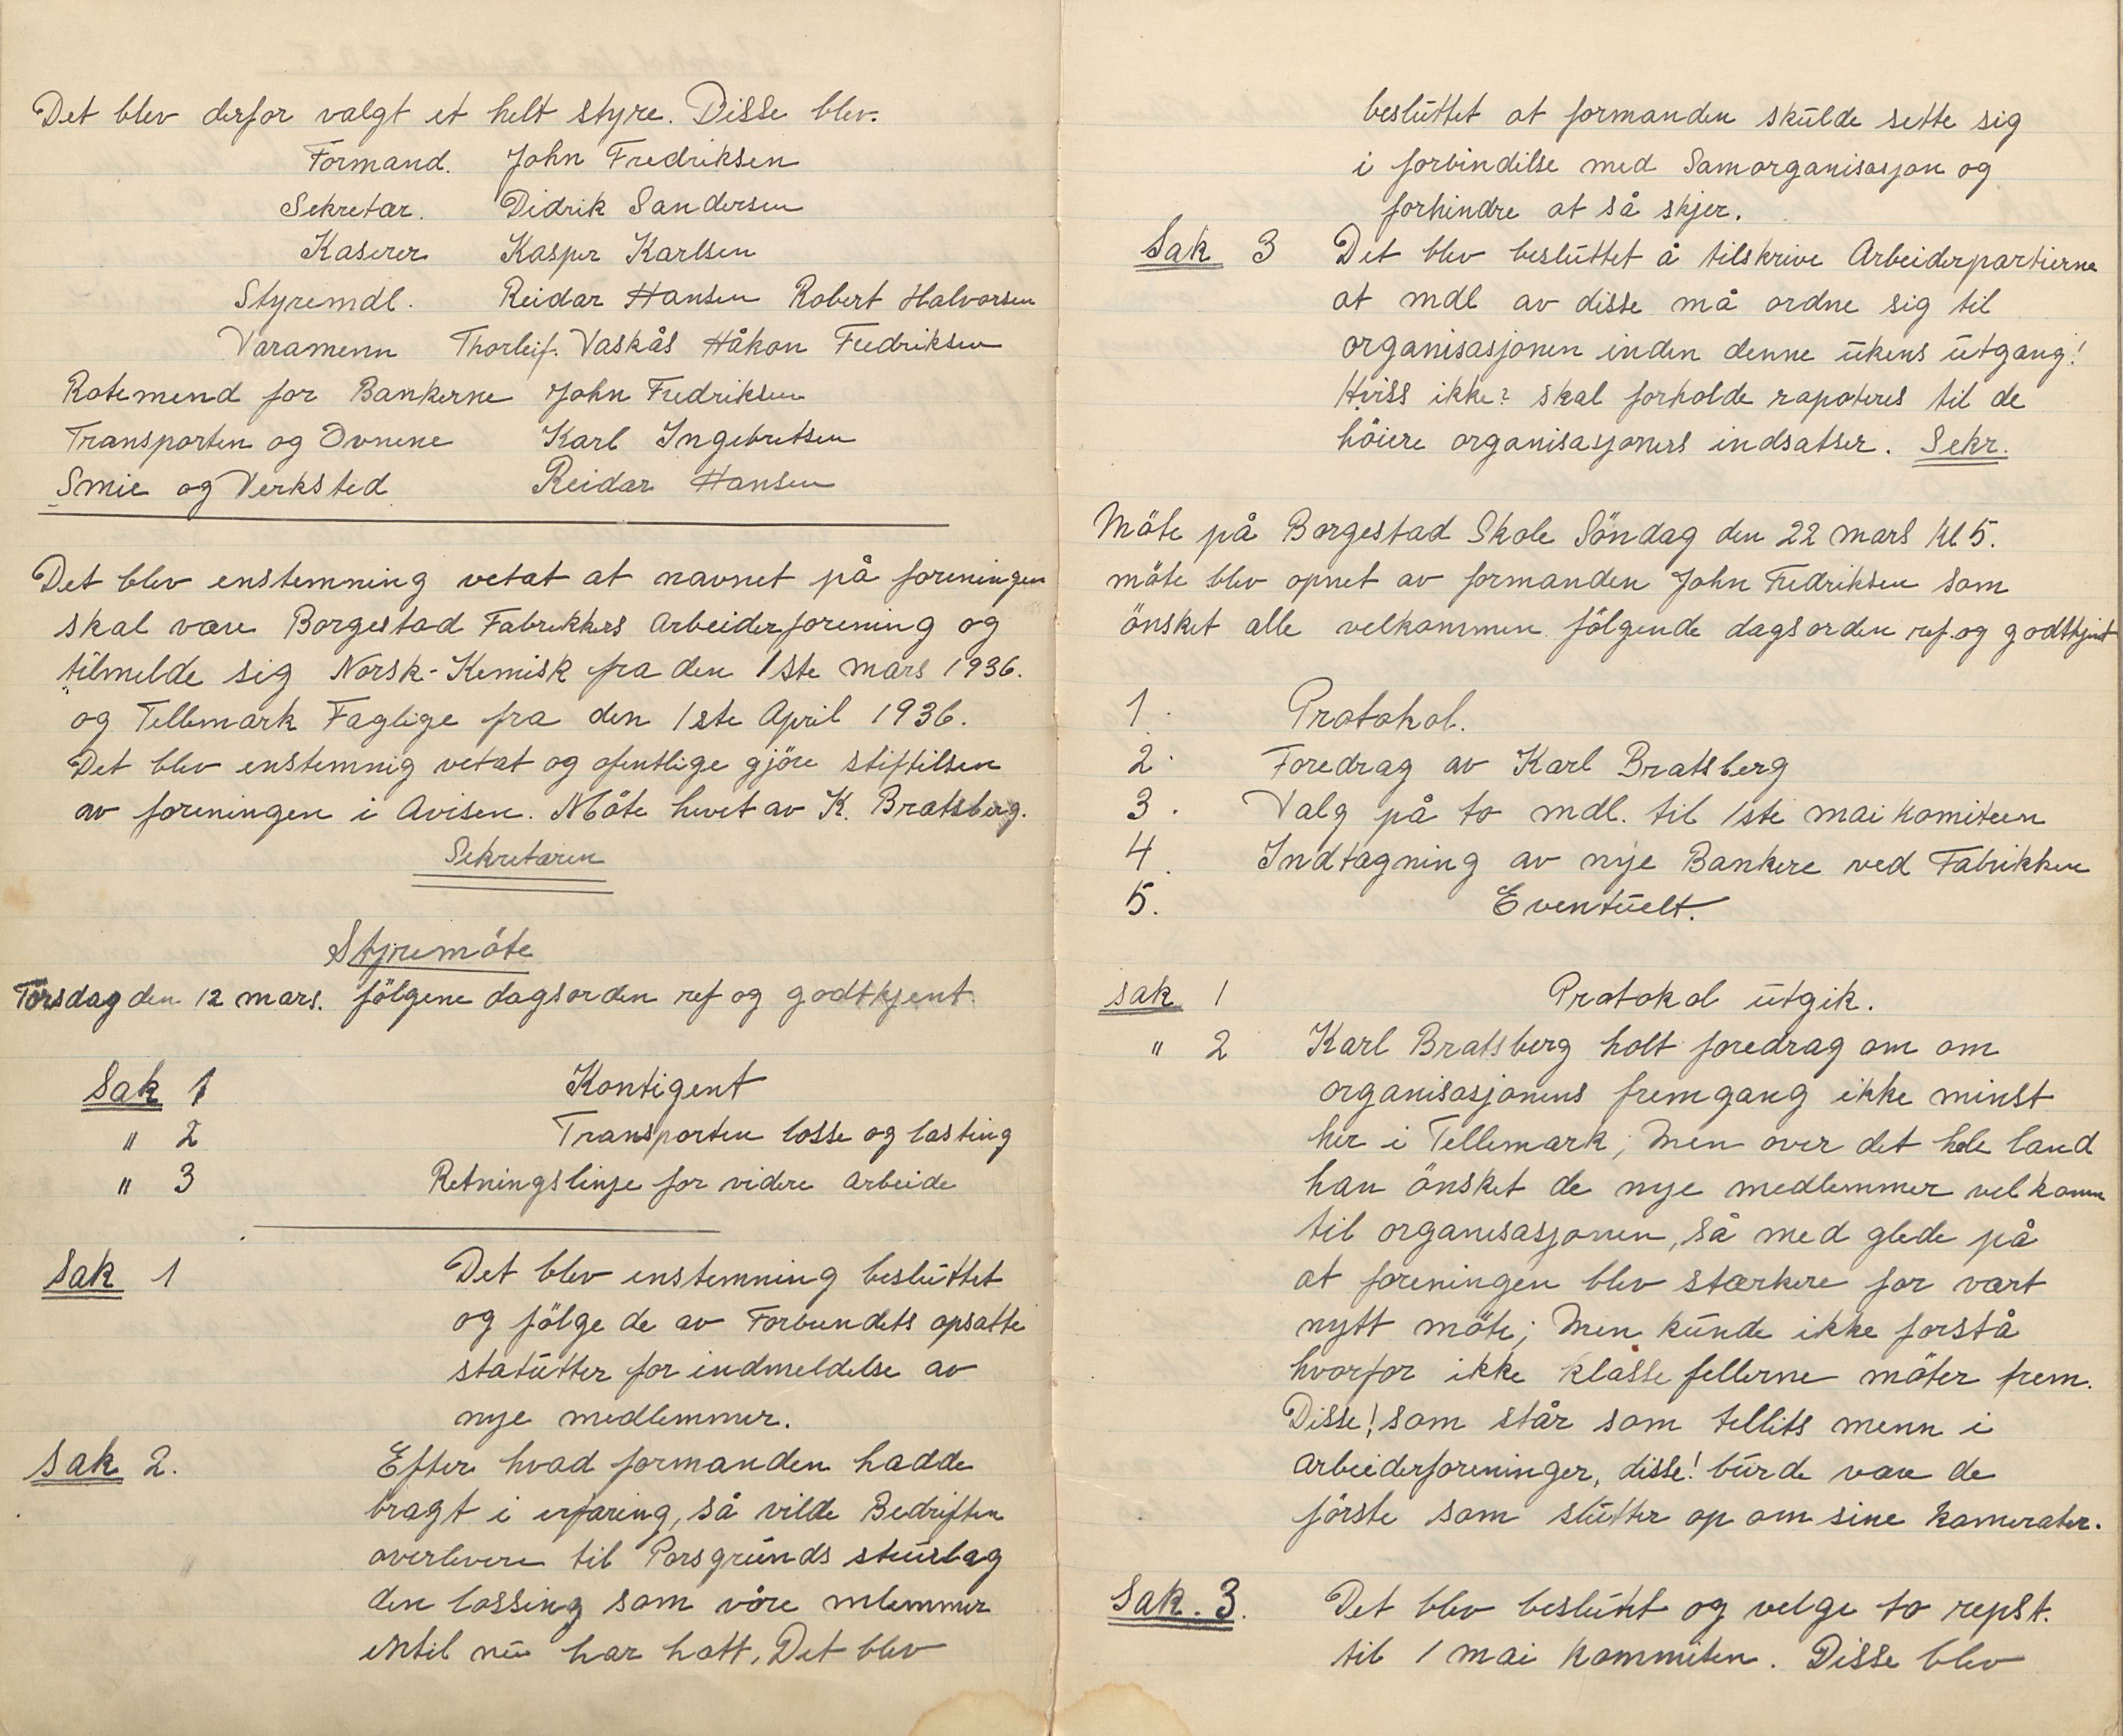 Det blev derfor valgt et helt styre. Disse blev.
Formand. John Fredriksen
Sekretær. Didrik Sandersen
Kaserer Kasper Karlsen
Styremdl. Reidar Hansen Robert Halvorsen
Varamenn Thorleif. Vaskås Håkon Fredriksen
Rotemend for Bankerne John Fredriksen
Transporten og Ovnene Karl Ingebretsen
Smie og Verksted Reidar Hansen
Det blev enstemning vetat at navnet på foreningen
skal være Borgestad Fabrikkers Arbeiderforening og
tilmelde sig Norsk-Kemisk fra den 1ste mars 1936.
og Tellemark Faglige fra den 1ste April 1936.
Det blev enstemnig vetat og ofentlige gjöre stiftilsen
av foreningen i Avisen. Möte hevet av K. Bratsberg.
Sekretæren
Styremöte
Torsdag den 12 mars. fölgene dagsorden ref og godtkjent.
Sak 1 Kontigent
" 2 Transporten losse og lasting
" 3 Retningslinje for videre arbeide
Sak 1 Det blev enstemning besluttet
og fölge de av Forbundets opsatte
statutter for indmeldelse av
nye medlemmer.
Sak 2. Efter hvad formanden hadde
bragt i erfaring, så vilde Bedriften
overlevere til Porsgrunds stuslag
den lossing som våre mlemmer
intil nu har hatt, Det blev
besluttet at formanden skulde sette sig
i forbindelse med Samorganisasjon og
forhindre at så skjer.
Sak 3 Det blev besluttet å tilskrive Arbeiderpartierne
at mdl av disse må ordne sig til
organisasjonen inden denne ukens utgang!
Hviss ikke? skal forholde rapoteres til de
höiere organisasjoners indsatser. Sekr.
Möte på Borgestad Skole Söndag den 22 mars kl 5.
möte blev opnet av formanden John Fredriksen som
önsket alle velkommen fölgende dagsorden ref. og godtkjent
1. Protokol.
2. Foredrag av Karl Bratsberg
3. Valg på to mdl. til 1ste mai komiteen
4. Indtagning av nye Bankere ved Fabrikken
5. Eventuelt.
sak 1 Protokol utgik.
" 2 Karl Bratsberg holt foredrag om om
organisasjonens fremgang ikke minst
her i Tellemark; Men over det hele land
han önsket de nye medlemmer velkomm
til organisasjonen, så med glede på
at foreningen blev stærkere for vært
nytt möte; Men kunde ikke forstå
hvorfor ikke klasse fellerne möter frem.
Disse! som står som tellits menn i
arbeiderforeninger, disse! burde være de
förste som slutter op om sine kamerater.
Sak. 3. Det blev beslutet og velge to repst.
til 1 mai kommiten. Disse blev